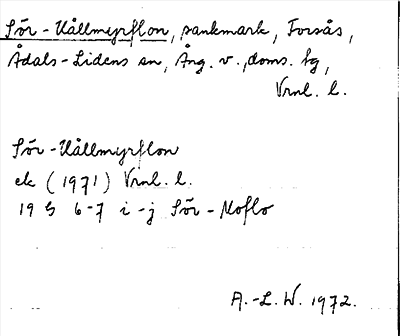 Sör-Kållmyrflon, sankmark, Forsås,
Ådals-Lidens sn, Ång. v., doms. hg,
Vrnl. l.
Sör-Kållmyrflon
ek (1971) Vrnl. l.
19 G 6-7 i-j Sör-Moflo
A.-L. W. 1972.